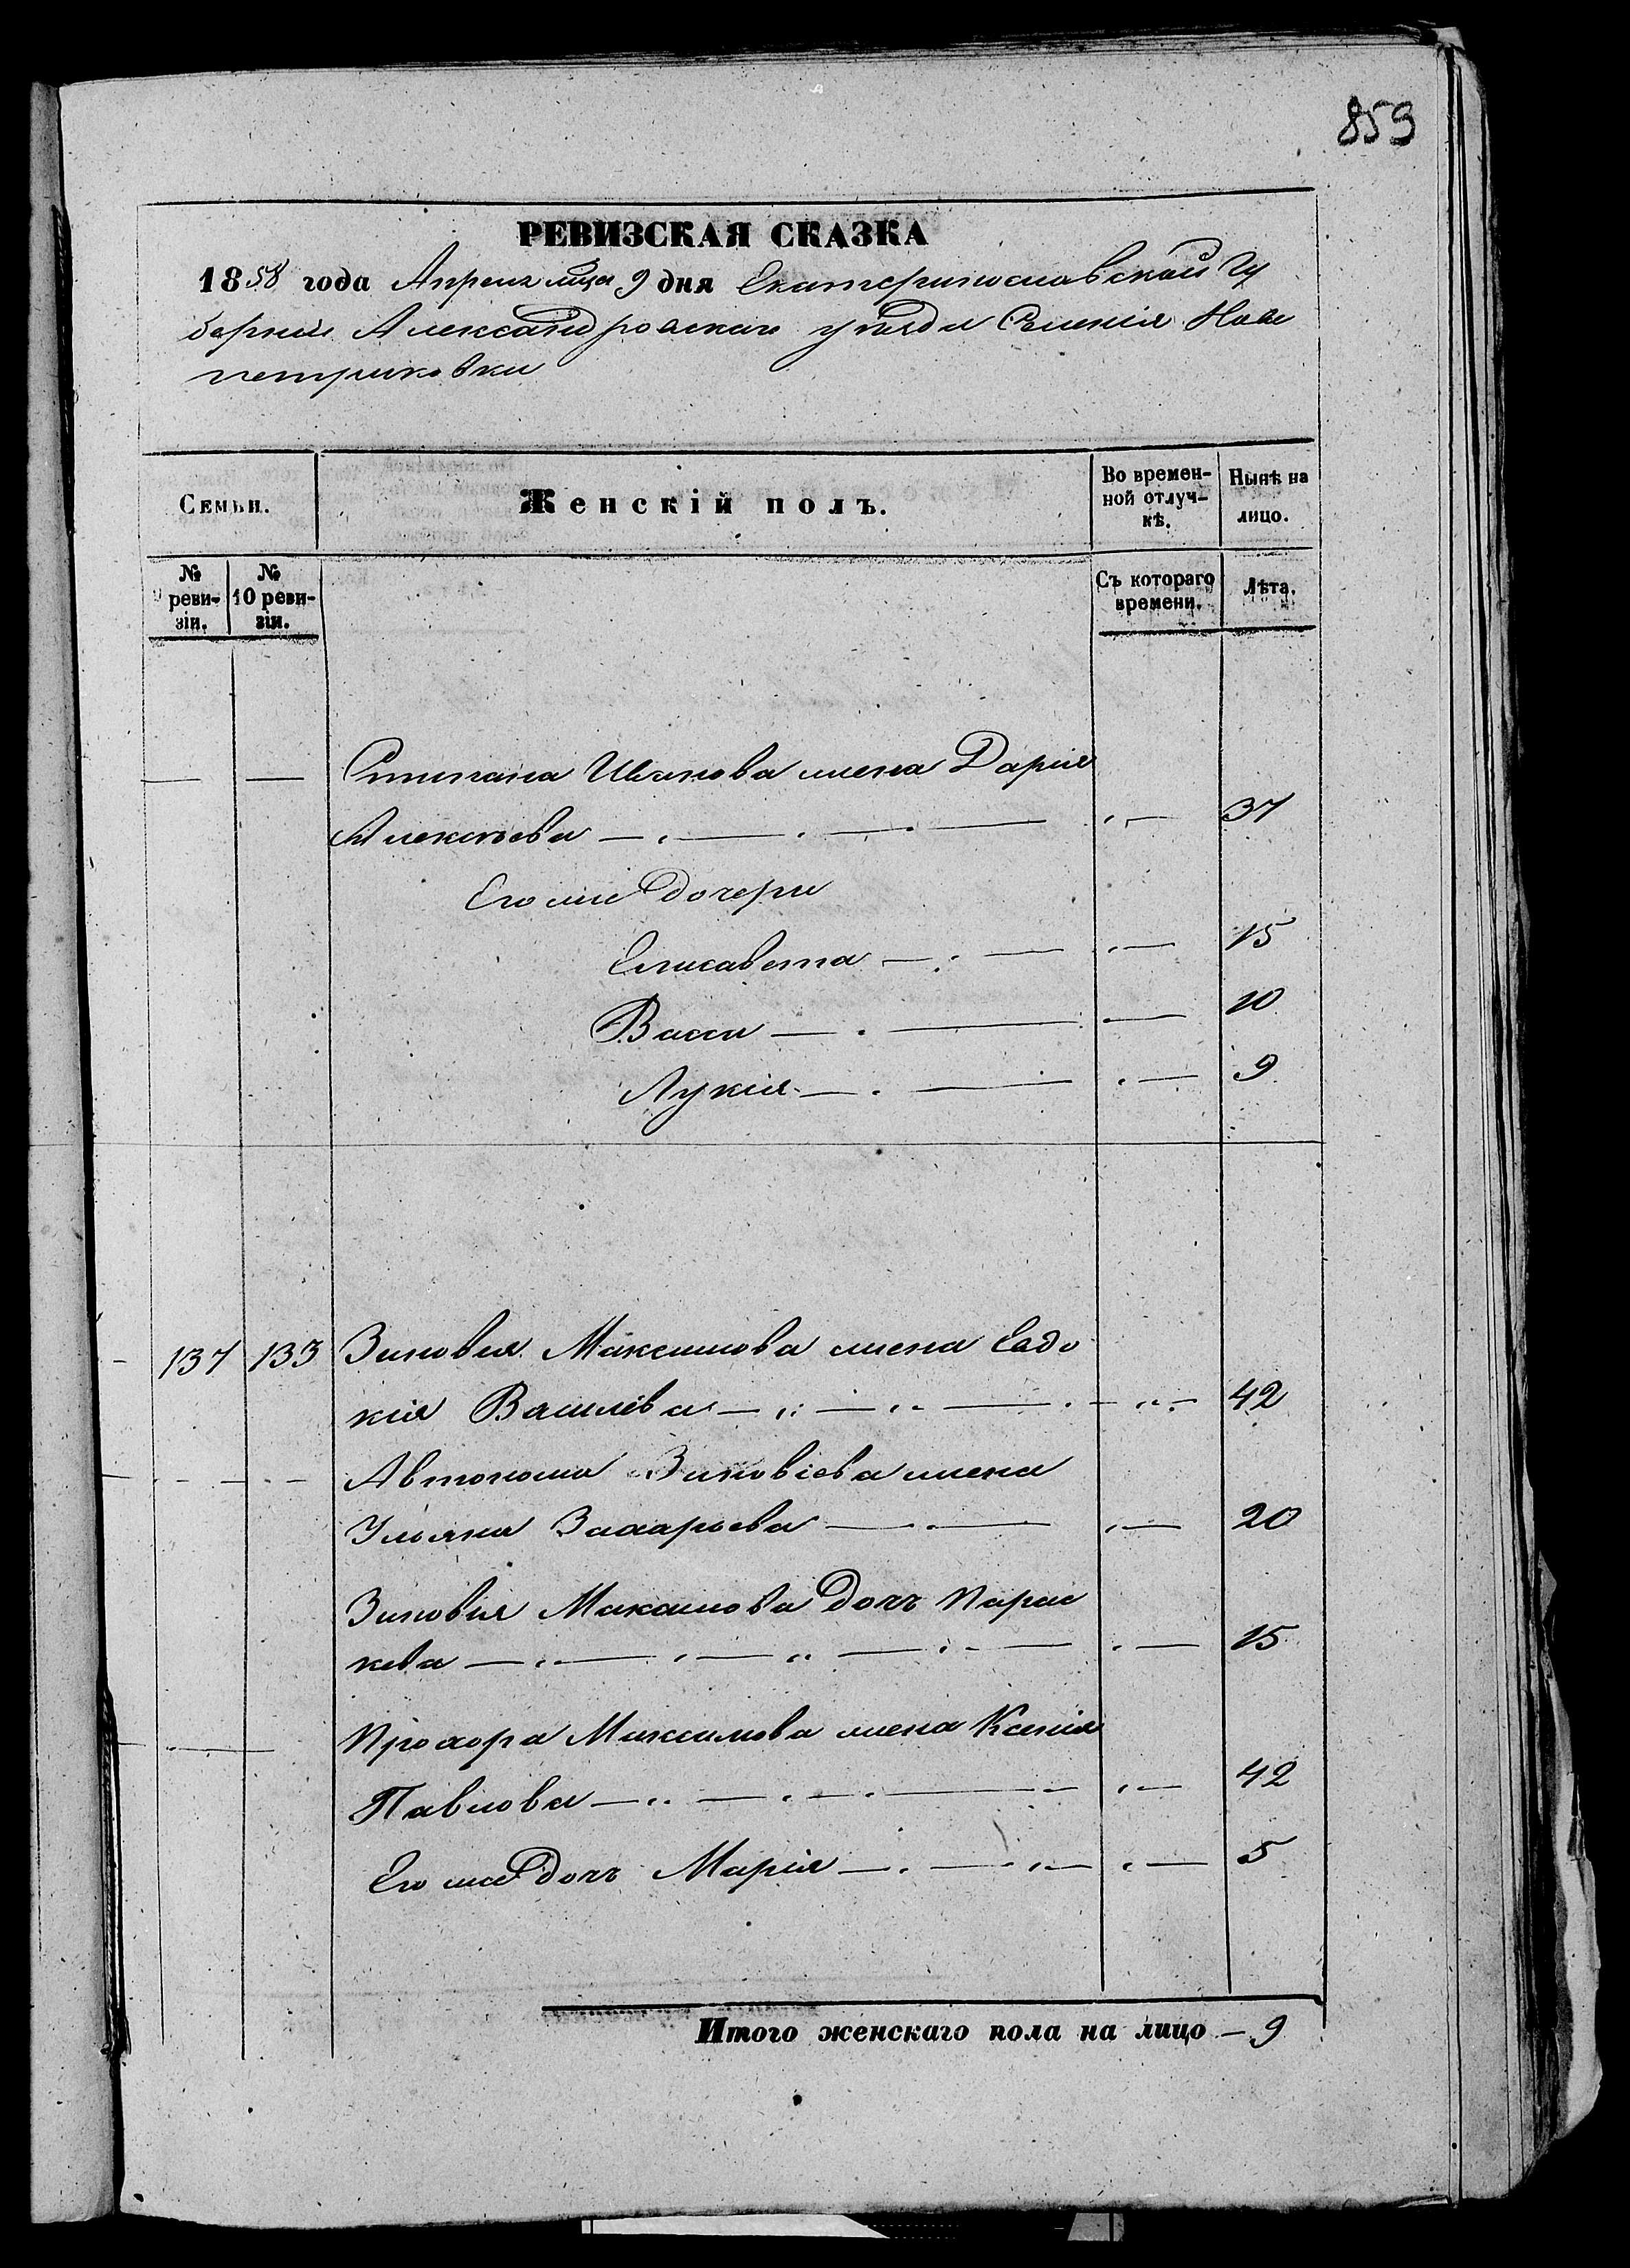 859
РЕВИЗСКАЯ СКАЗКА
1858 года Апреля мца 9 дня Екатеринославской Гу
берніи Александровскаго уѣзда Селенія Ново
петриковки
Семьи.
Женскій полъ.
Во времен-
ной отлуч-
кѣ.
Нынѣ на
лицо.
№
реви-
зіи.
№
10 реви-
зіи.
Съ котораго
времени.
Лѣта.
Степана Иванова жена Дарія
Алексѣева 37
Его же дочери
Елисавета 15
Васса 10
Лукія 9
137 133 Зиновія Максимова жена Евдо
кія Васильева 42
Автонома Зиновіева жена
Ульяна Захарьева 20
Зиновія Максимова дочь Парас
кева 15
Прохора Максимова жена Ксенія
Павлова 42
Его же дочь Марія 5
Итого женскаго пола на лицо — 9